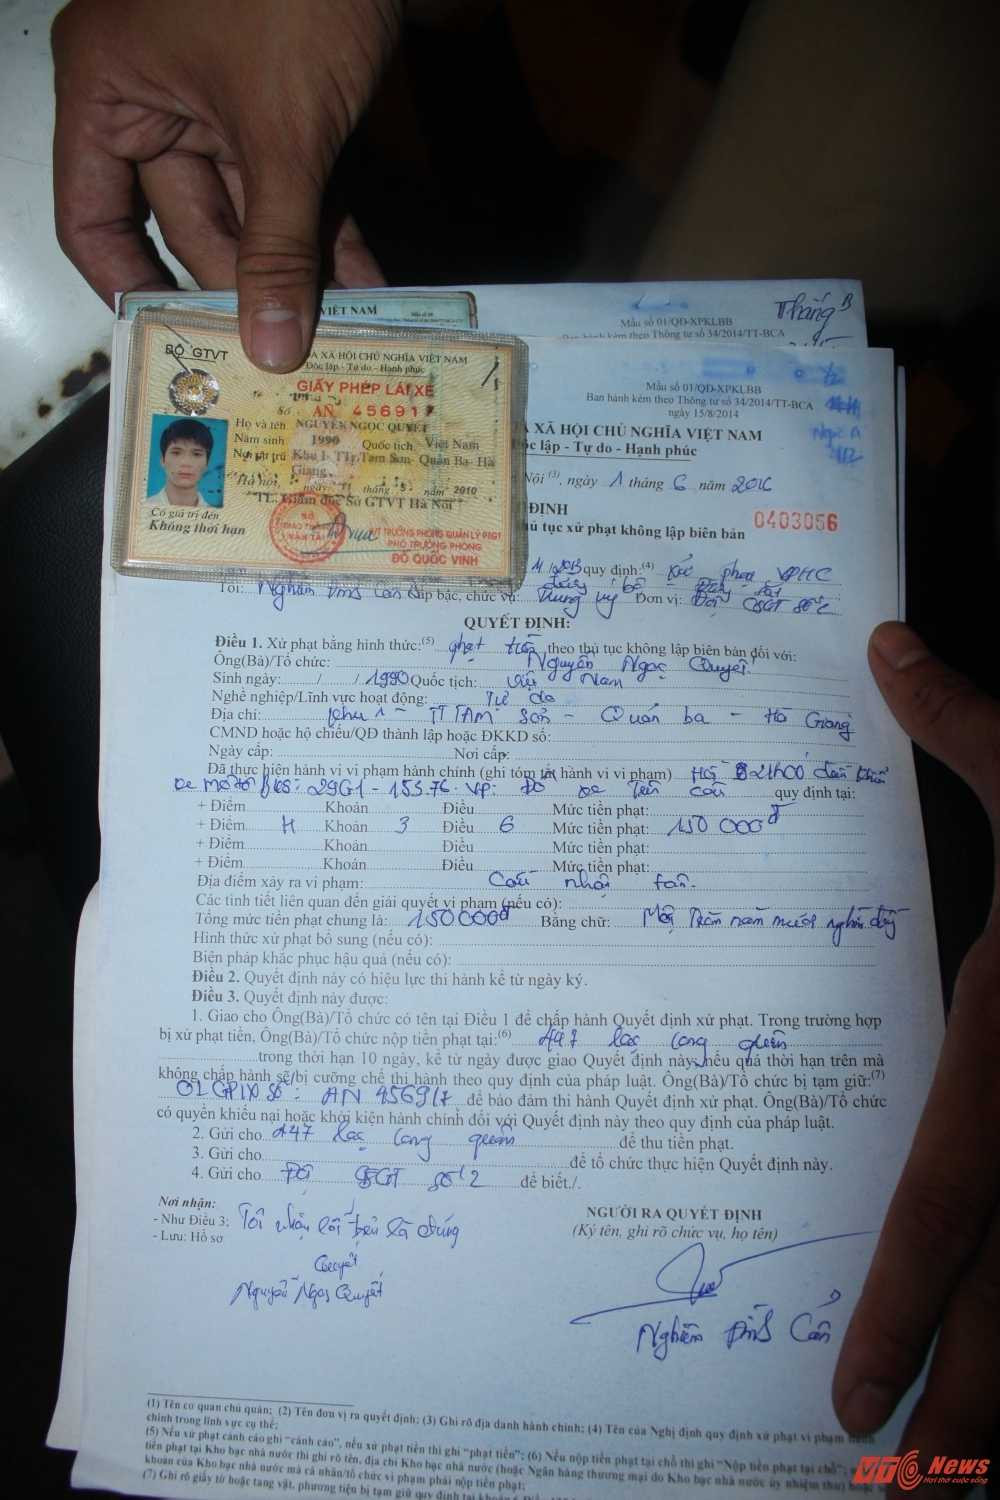 VIỆT NAM
Mẫu số
Mẫu số 01/QĐ-XPKLBB
Ban hành kèm theo Thông tư số 34/2014/TT-BCA
Thắng B
BỘ GTVT
XÃ HỘI CHỦ NGHĨA VIỆT NAM
Độc lập - Tự do - Hạnh phúc
GIẤY PHÉP LÁI XE
Số AN 456917
Họ và tên NGUYỄN NGỌC QUYẾT
Năm sinh 1990 Quốc tịch Việt Nam
Nơi cư trú Khu 1- TT.Tam Sơn- Quản Bạ- Hà
Giang
Hà nội, ngày 11 tháng 5 năm 2010
TL. Giám đốc Sở GTVT Hà Nội
Có giá trị đến
Không thời hạn
SỞ
GIAO THÔNG
VẬN TẢI
KT TRƯỞNG PHÒNG QUẢN LÝ PT&NL
PHÓ TRƯỞNG PHÒNG
ĐỖ QUỐC VINH
Mẫu số 01/QĐ-XPKLBB
Ban hành kèm theo Thông tư số 34/2014/TT-BCA
ngày 15/8/2014
XÃ HỘI CHỦ NGHĨA VIỆT NAM
Độc lập - Tự do - Hạnh phúc
Nội (3), ngày 1 tháng 6 năm 2016
ĐỊNH
thủ tục xử phạt không lập biên bản
0403056
quy định:(4) xử phạt VPHC
Tôi: Cấp bậc, chức vụ: Trung úy Đơn vị: Đội CSGT số 2
QUYẾT ĐỊNH:
Điều 1. Xử phạt bằng hình thức:(5) phạt tiền theo thủ tục không lập biên bản đối với:
Ông(Bà)/Tổ chức: Nguyễn Ngọc Quyết
Sinh ngày: / / 1990 Quốc tịch: Việt Nam
Nghề nghiệp/Lĩnh vực hoạt động: Tự do
Địa chỉ: Khu 1 - TT TAM Sơn - Quản bạ - Hà Giang
CMND hoặc hộ chiếu/QĐ thành lập hoặc ĐKKD số:
Ngày cấp: Nơi cấp:
Đã thực hiện hành vi vi phạm hành chính (ghi tóm tắt hành vi vi phạm) 21h00 điều khiển
xe mô tô BKS: 29G1 - 153.76. VP: Đỗ xe trên cầu quy định tại:
+ Điểm Khoản Điều Mức tiền phạt:
+ Điểm H Khoản 3 Điều 6 Mức tiền phạt: 150 000đ
+ Điểm Khoản Điều Mức tiền phạt:
+ Điểm Khoản Điều Mức tiền phạt:
Địa điểm xảy ra vi phạm: Cầu nhật tân.
Các tình tiết liên quan đến giải quyết vi phạm (nếu có):
Tổng mức tiền phạt chung là: 150000đ Bằng chữ: Một trăm năm mươi nghìn đồng
Hình thức xử phạt bổ sung (nếu có):
Biện pháp khắc phục hậu quả (nếu có):
Điều 2. Quyết định này có hiệu lực thi hành kể từ ngày ký.
Điều 3. Quyết định này được:
1. Giao cho Ông(Bà)/Tổ chức có tên tại Điều 1 để chấp hành Quyết định xử phạt. Trong trường hợp
bị xử phạt tiền, Ông(Bà)/Tổ chức nộp tiền phạt tại:(6) 447 lạc long quân
trong thời hạn 10 ngày, kể từ ngày được giao Quyết định này, nếu quá thời hạn trên mà
không chấp hành sẽ bị cưỡng chế thi hành theo quy định của pháp luật. Ông(Bà)/Tổ chức bị tạm giữ:(7)
01 GPLX Số: AN 456917 để bảo đảm thi hành Quyết định xử phạt. Ông(Bà)/Tổ chức
có quyền khiếu nại hoặc khởi kiện hành chính đối với Quyết định này theo quy định của pháp luật.
2. Gửi cho 447 lạc long quân để thu tiền phạt.
3. Gửi cho để tổ chức thực hiện Quyết định này.
4. Gửi cho Đội CSGT số 2 để biết./.
Nơi nhận:
- Như Điều 3;
- Lưu: Hồ sơ
Tôi nhận lỗi trên là đúng
Quyết
Nguyễn Ngọc Quyết
NGƯỜI RA QUYẾT ĐỊNH
(Ký tên, ghi rõ chức vụ, họ tên)
(1) Tên cơ quan chủ quản; (2) Tên đơn vị ra quyết định; (3) Ghi rõ địa danh hành chính; (4) Tên của Nghị định quy định xử phạt vi phạm hành
chính trong lĩnh vực cụ thể;
(5) Nếu xử phạt cảnh cáo ghi “cảnh cáo”, nếu xử phạt tiền thì ghi “phạt tiền”; (6) Nếu nộp tiền phạt tại chỗ thì ghi “Nộp tiền phạt tại chỗ”;
tiền phạt tại Kho bạc nhà nước thì ghi rõ tên, địa chỉ Kho bạc nhà nước (hoặc Ngân hàng thương mại do Kho bạc nhà nước ủy nhiệm thu) hoặc số
khoản của Kho bạc nhà nước mà cá nhân/tổ chức vi phạm phải nộp tiền phạt;
(7) Ghi rõ giấy tờ hoặc tang vật, phương tiện bị tạm giữ
VTC News
Hơi thở cuộc sống